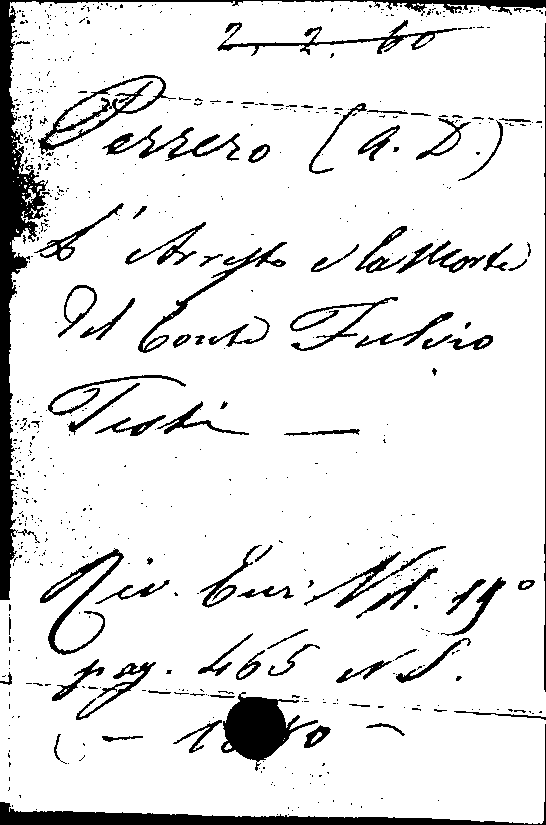 2. 2. 60
Perrero (A. D.)
L'Arresto e la Morte
del Conte Fulvio
Testi —
Riv. Eur: Vol. 19°
pag. 465 N S.
— 1880 —